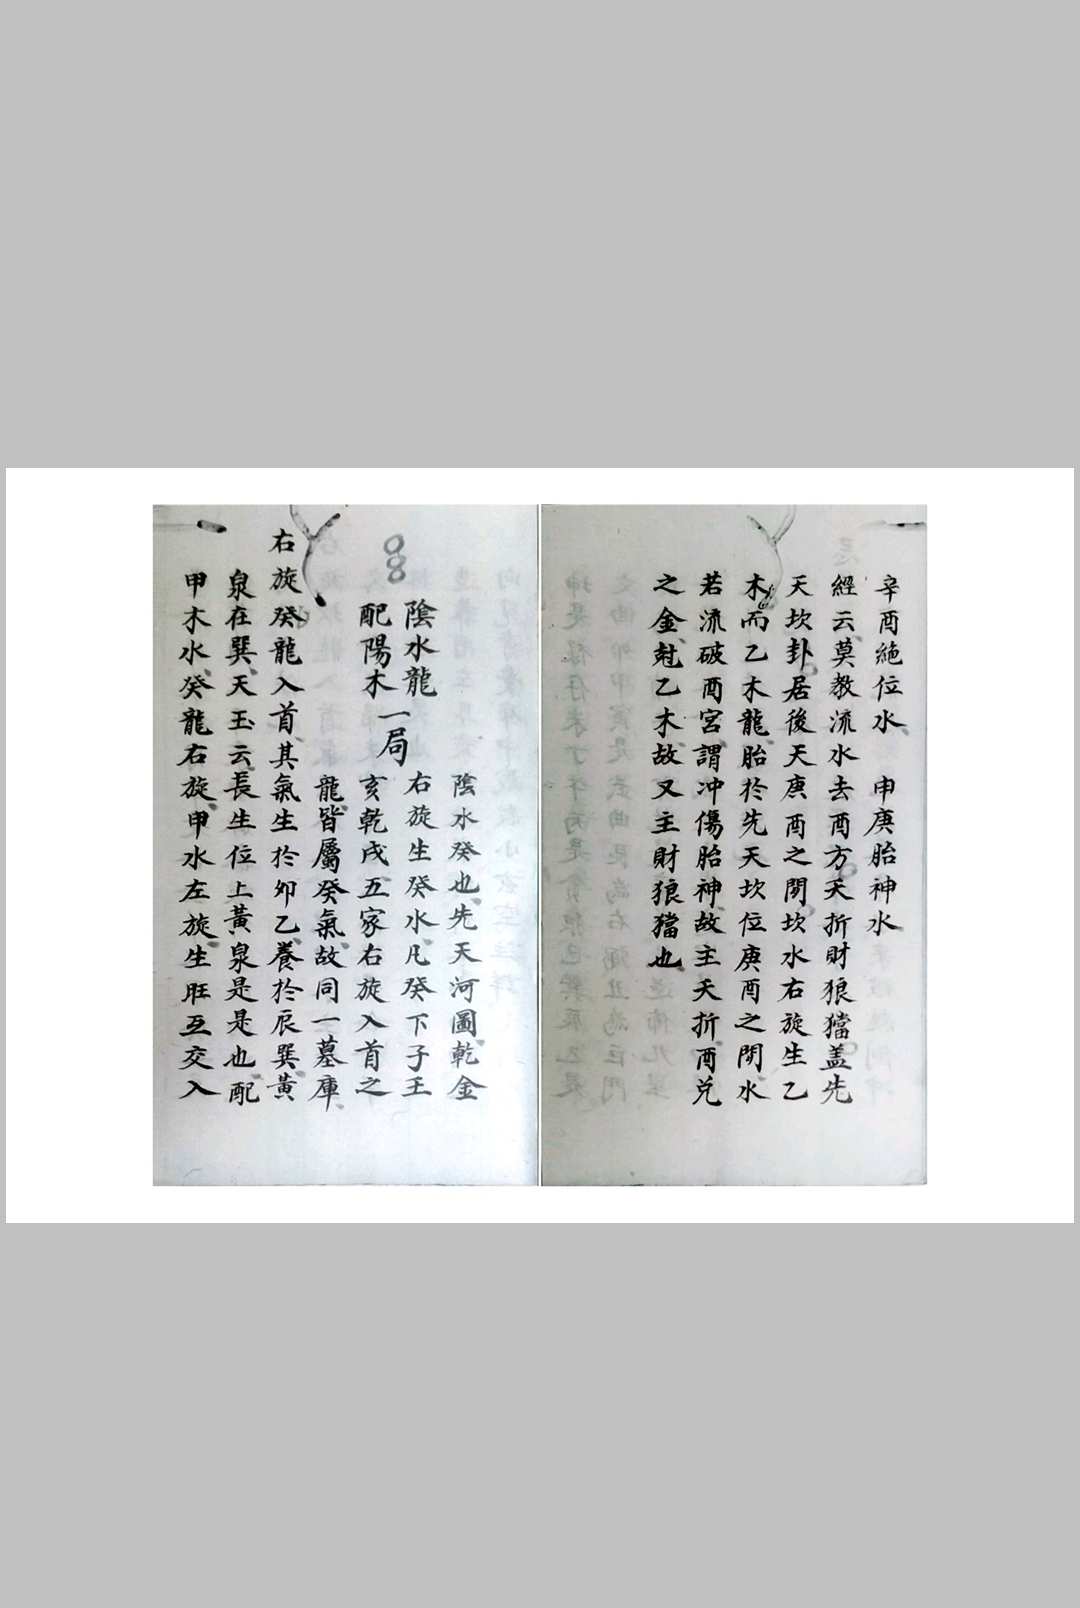 辛酉絶位水　申庚胎神水
經云莫教流水去酉方夭折財狼獊盖先
天坎卦居後天庚酉之間坎水右旋生乙
木而乙木龍胎於先天坎位庚酉之間水
若流破酉宮謂冲傷胎神故主夭折酉兌
之金尅乙木故又主財狼獊也
陰水龍
配陽木
一局
陰水癸也先天河圖乾金
右旋生癸水凡癸下子王
亥乾戌五家右旋入首之
龍皆屬癸氣故同一墓庫
右旋癸龍入首其氣生於卯乙養於辰巽黃
泉在巽天玉云長生位上黃泉是是也配
甲木水癸龍右旋甲水左旋生旺互交入